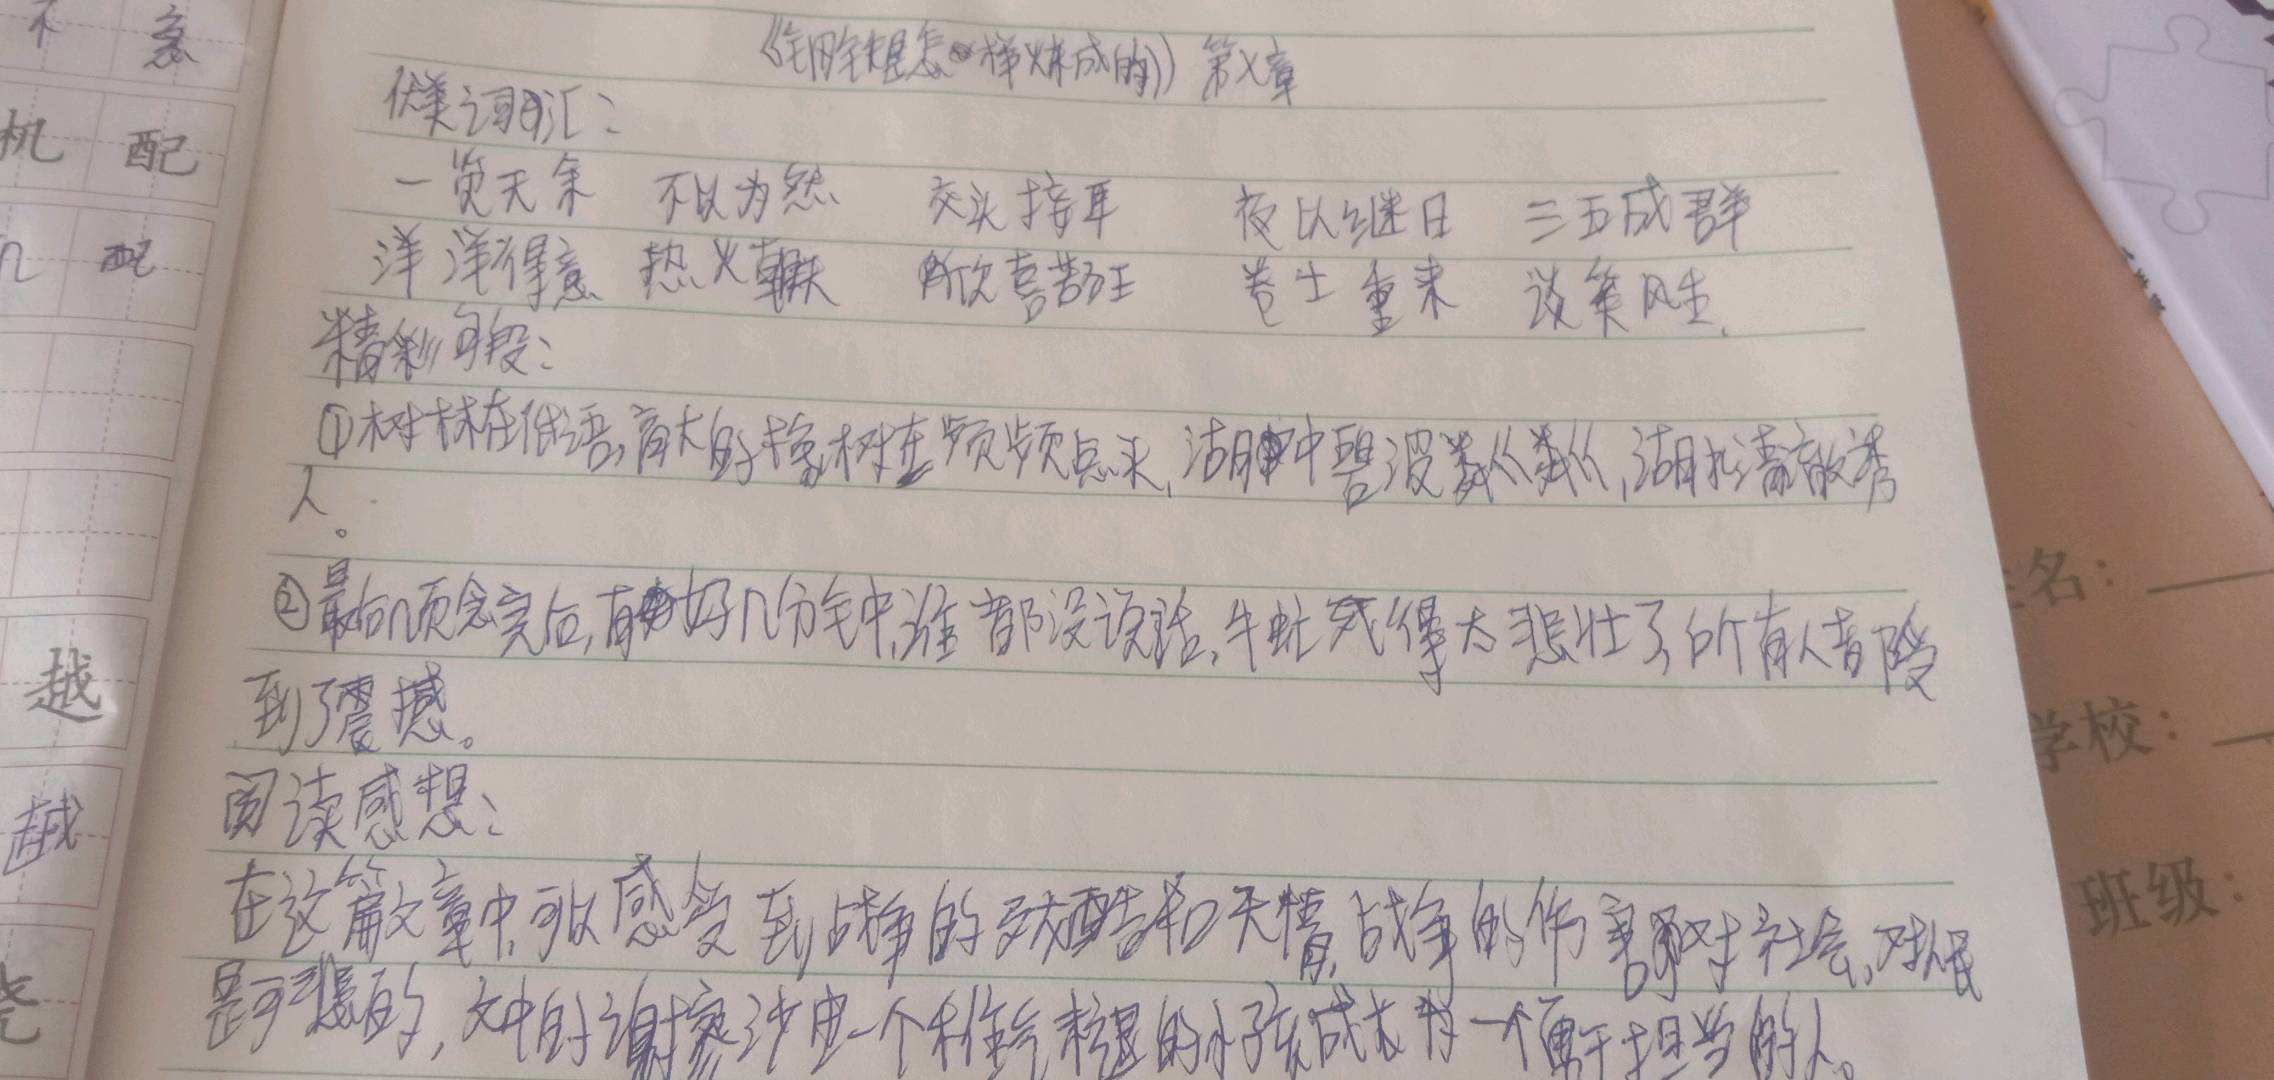 不 急
机 配
配
越
越
《钢铁是怎样炼成的》第X章
优美词汇：
一览无余 不以为然 交头接耳 夜以继日 三五成群
洋洋得意 热火朝天 欣喜若狂 卷土重来 谈笑风生.
精彩句段：
①树林在低语,高大的橡树在频频点头,湖中碧波粼粼,湖水清澈诱
人。
②最后几页念完后,有好几分钟,谁都没说话,牛虻死得太悲壮了,所有人都受
到了震撼。
阅读感想：
在这篇文章中,可以感受到战争的残酷和无情,战争的伤害对社会,对人民
是可想的,文中的谢廖沙由一个稚气未退的小孩成长为一个勇于担当的人。
姓名：
学校：
班级：